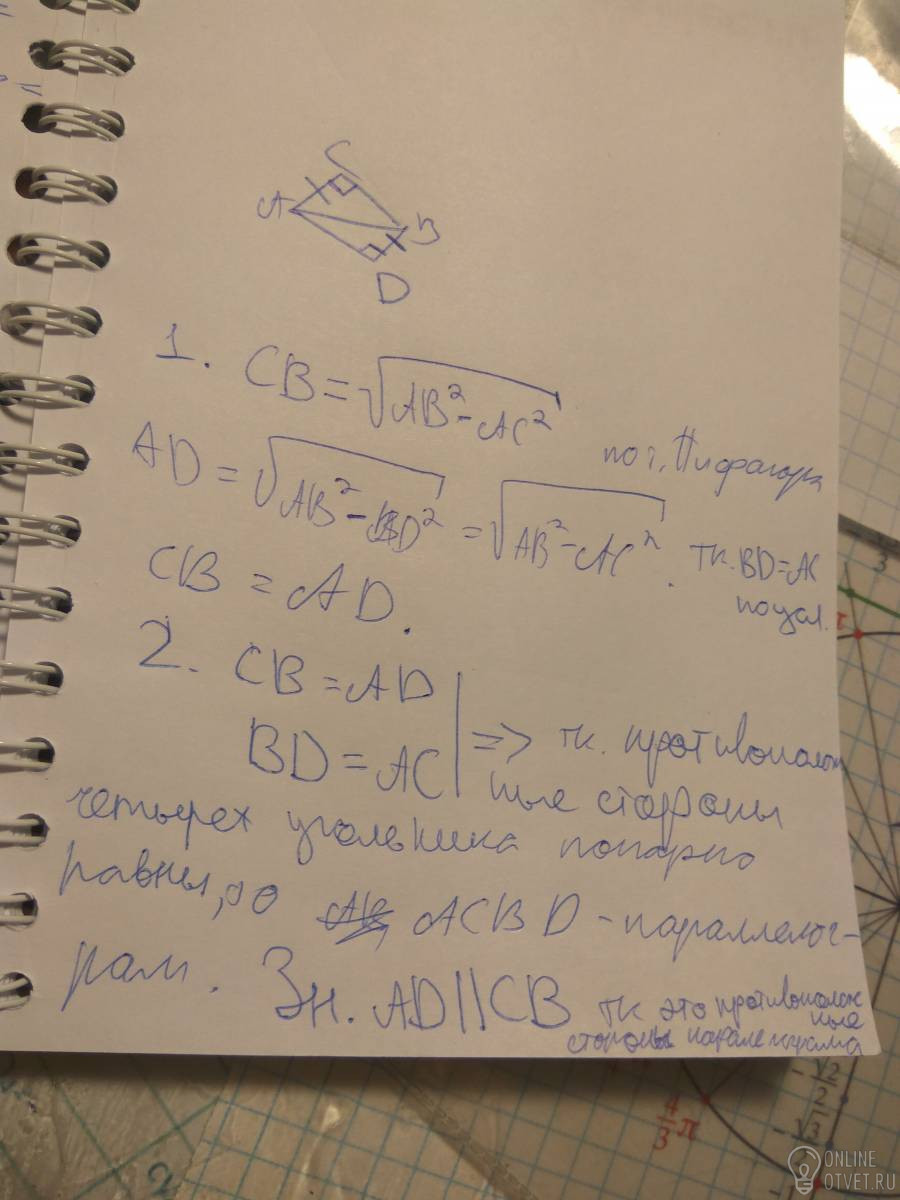 C
A
B
D
1. CB = √AB² - AC²
по т. Пифагора
AD = √AB² - BD² = √AB² - AC². тк. BD = AC
по усл.
CB = AD.
2. CB = AD
BD = AC | => тк. противополож
ные стороны
четырех угольника попарно
равны, то ACBD - параллелог-
рам. Зн. AD || CB тк это противополож
ные
стороны паралелограма
3
π
4/3 π
-√2/2
-√3
2
ONLINE
OTVET.RU